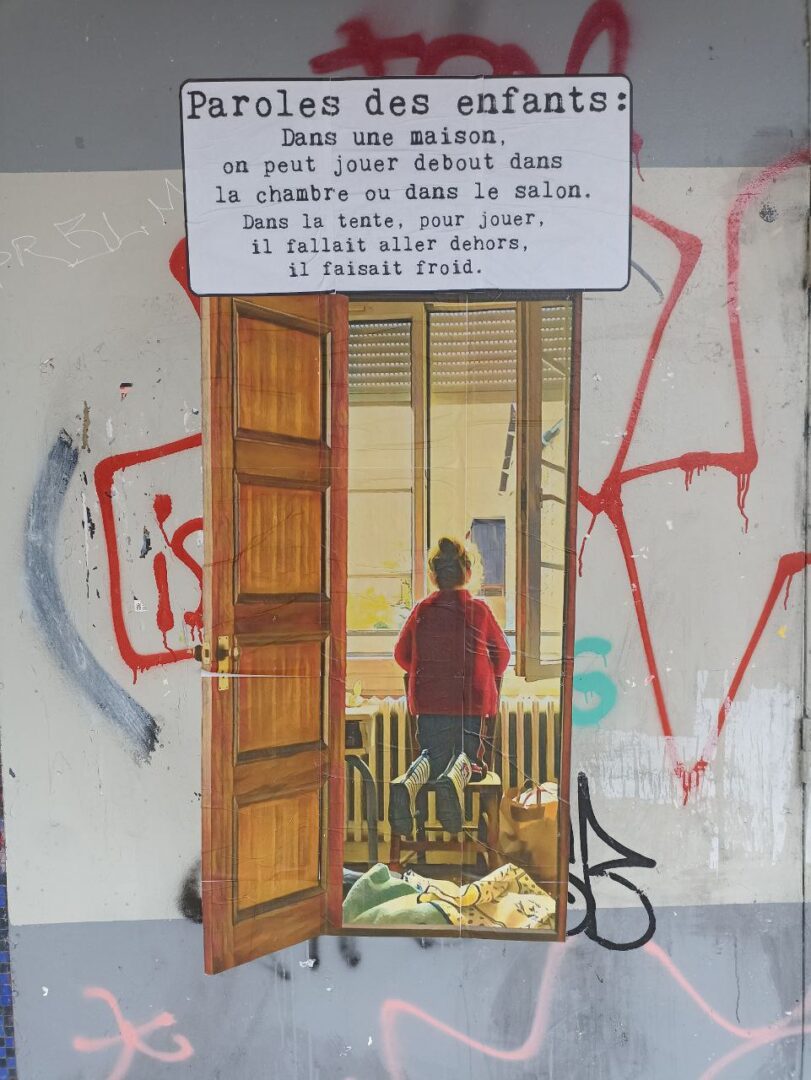 Paroles des enfants:
Dans une maison,
on peut jouer debout dans
la chambre ou dans le salon.
Dans la tente, pour jouer,
il fallait aller dehors,
il faisait froid.